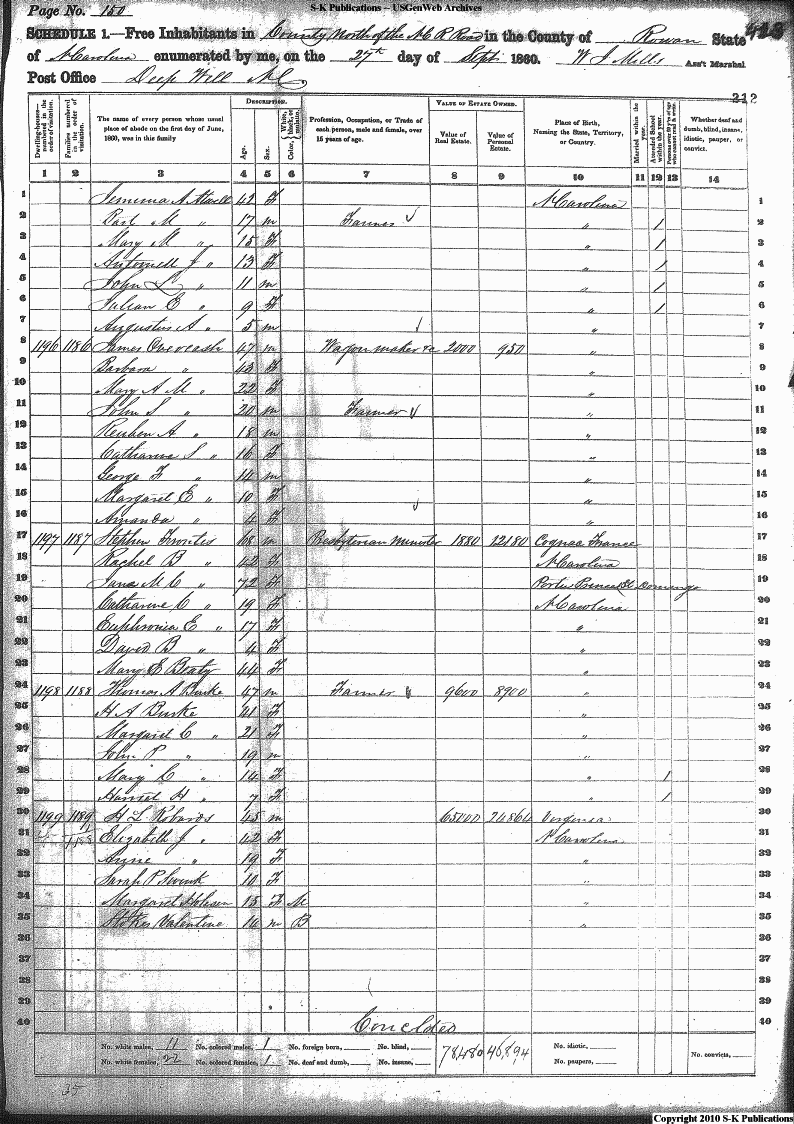 S-K Publications -- USGenWeb Archives
Page No. 150
SCHEDULE 1.—Free Inhabitants in County North of the N C R Road in the County of Rowan State
of N Carolina enumerated by me, on the 27th day of Sept. 1860. W J Mills Ass't Marshal
Post Office Deep Well N C
212
Dwelling-houses—numbered in the order of visitation.
Families numbered in the order of visitation.
The name of every person whose usual place of abode on the first day of June, 1860, was in this family
DESCRIPTION.
Age.
Sex.
Color, White, black, or mulatto.
Profession, Occupation, or Trade of each person, male and female, over 15 years of age.
VALUE OF ESTATE OWNED.
Value of Real Estate.
Value of Personal Estate.
Place of Birth, Naming the State, Territory, or Country.
Married within the year.
Attended School within the year.
Persons over 20 y'rs of age who cannot read & write.
Whether deaf and dumb, blind, insane, idiotic, pauper, or convict.
1 2 3 4 5 6 7 8 9 10 11 12 13 14
1 Jemima A Atwell 42 F N Carolina 1
2 M " 17 m Farmer " 1 2
3 Mary M " 15 F " 1 3
4 J " 13 F " 1 4
5 John L " 11 m " 1 5
6 Julian E " 9 F " 1 6
7 Augustus A " 5 m " 7
8 1196 1186 James Overcash 47 m Wagon maker &c 2000 950 " 8
9 Barbara " 43 F " 9
10 Mary A M " 22 F " 10
11 John S " 20 m Farmer " 11
12 Reuben A " 18 m " 12
13 Catharine S " 16 F " 13
14 George F " 14 m " 14
15 Margaret E " 10 F " 15
16 Amanda " 4 F " 16
17 1197 1187 Stephen Frontis 68 m Presbyterian Minister 1880 12180 Cognac France 17
18 Rachel B " 42 F N Carolina 18
19 Jane M C " 72 F Port Prince St Domingo 19
20 Catharine C " 19 F N Carolina 20
21 E " 17 F " 21
22 David B " 4 F " 22
23 Mary E Beaty 44 F " 23
24 1198 1188 Thomas A Burke 47 m Farmer 9600 8900 " 24
25 H A Burke 41 F " 25
26 Margaret C " 21 F " 26
27 John P " 19 m " 27
28 Mary L " 14 F " 1 28
29 Harriet H " 7 F " 1 29
30 1199 1189 H L Robards 45 m 65000 24864 Virginia 30
31 Elizabeth J " 42 F N Carolina 31
32 Anne " 19 F " 32
33 Sarah P Swink 10 F " 33
34 Margaret 15 F M " 34
35 Stokes Valentine 14 m B " 35
36 36
37 37
38 38
39 39
40 Concluded 40
No. white males, 11 No. colored males, 1 No. foreign born, No. blind, 78480 46,894 No. idiotic,
No. white females, 22 No. colored females, 1 No. deaf and dumb, No. insane, No. paupers, No. convicts,
35
Copyright 2010 S-K Publications